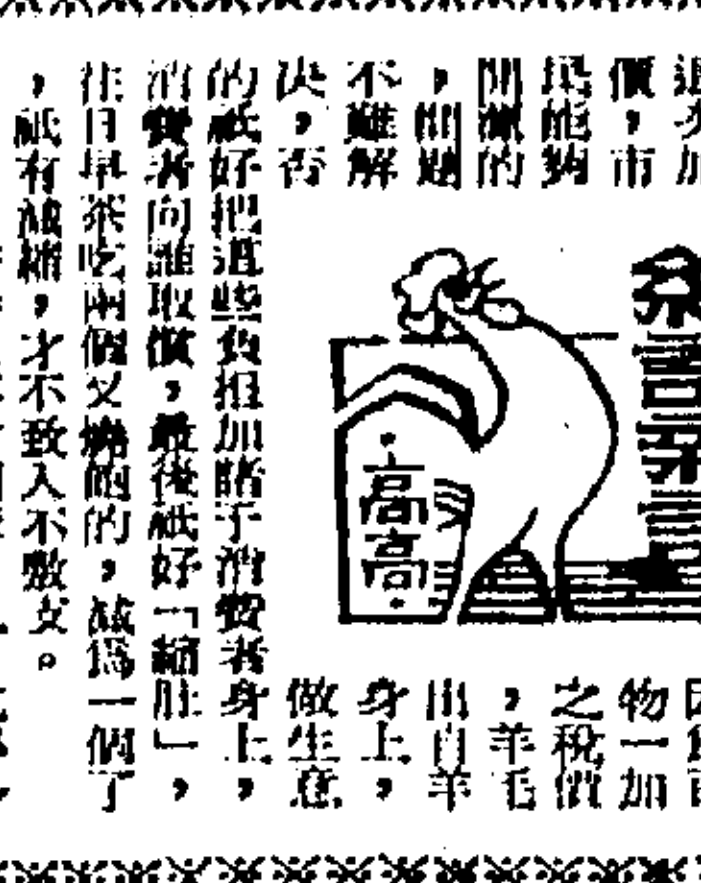 價，市
民能夠
開源的
，問題
不難解
決，否
·高高·
物一加
之稅價
，羊毛
出自羊
身上，
做生意
的祗好把這些負担加諸于消費者身上，
消費者向誰取償，最後祗好「縮肚」，
往日早茶吃兩個叉燒飽的，減爲一個了
，祗有減縮，才不致入不敷支。